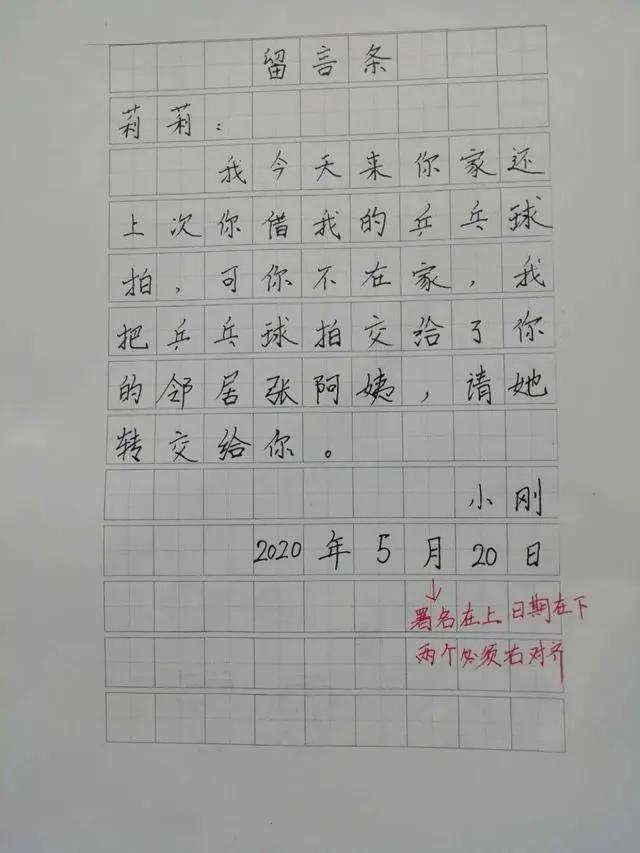 留言条
莉莉：
我今天来你家还
上次你借我的乒乓球
拍，可你不在家，我
把乒乓球拍交给了你
的邻居张阿姨，请她
转交给你。
小刚
2020年5月20日
署名在上 日期在下
两个必须右对齐